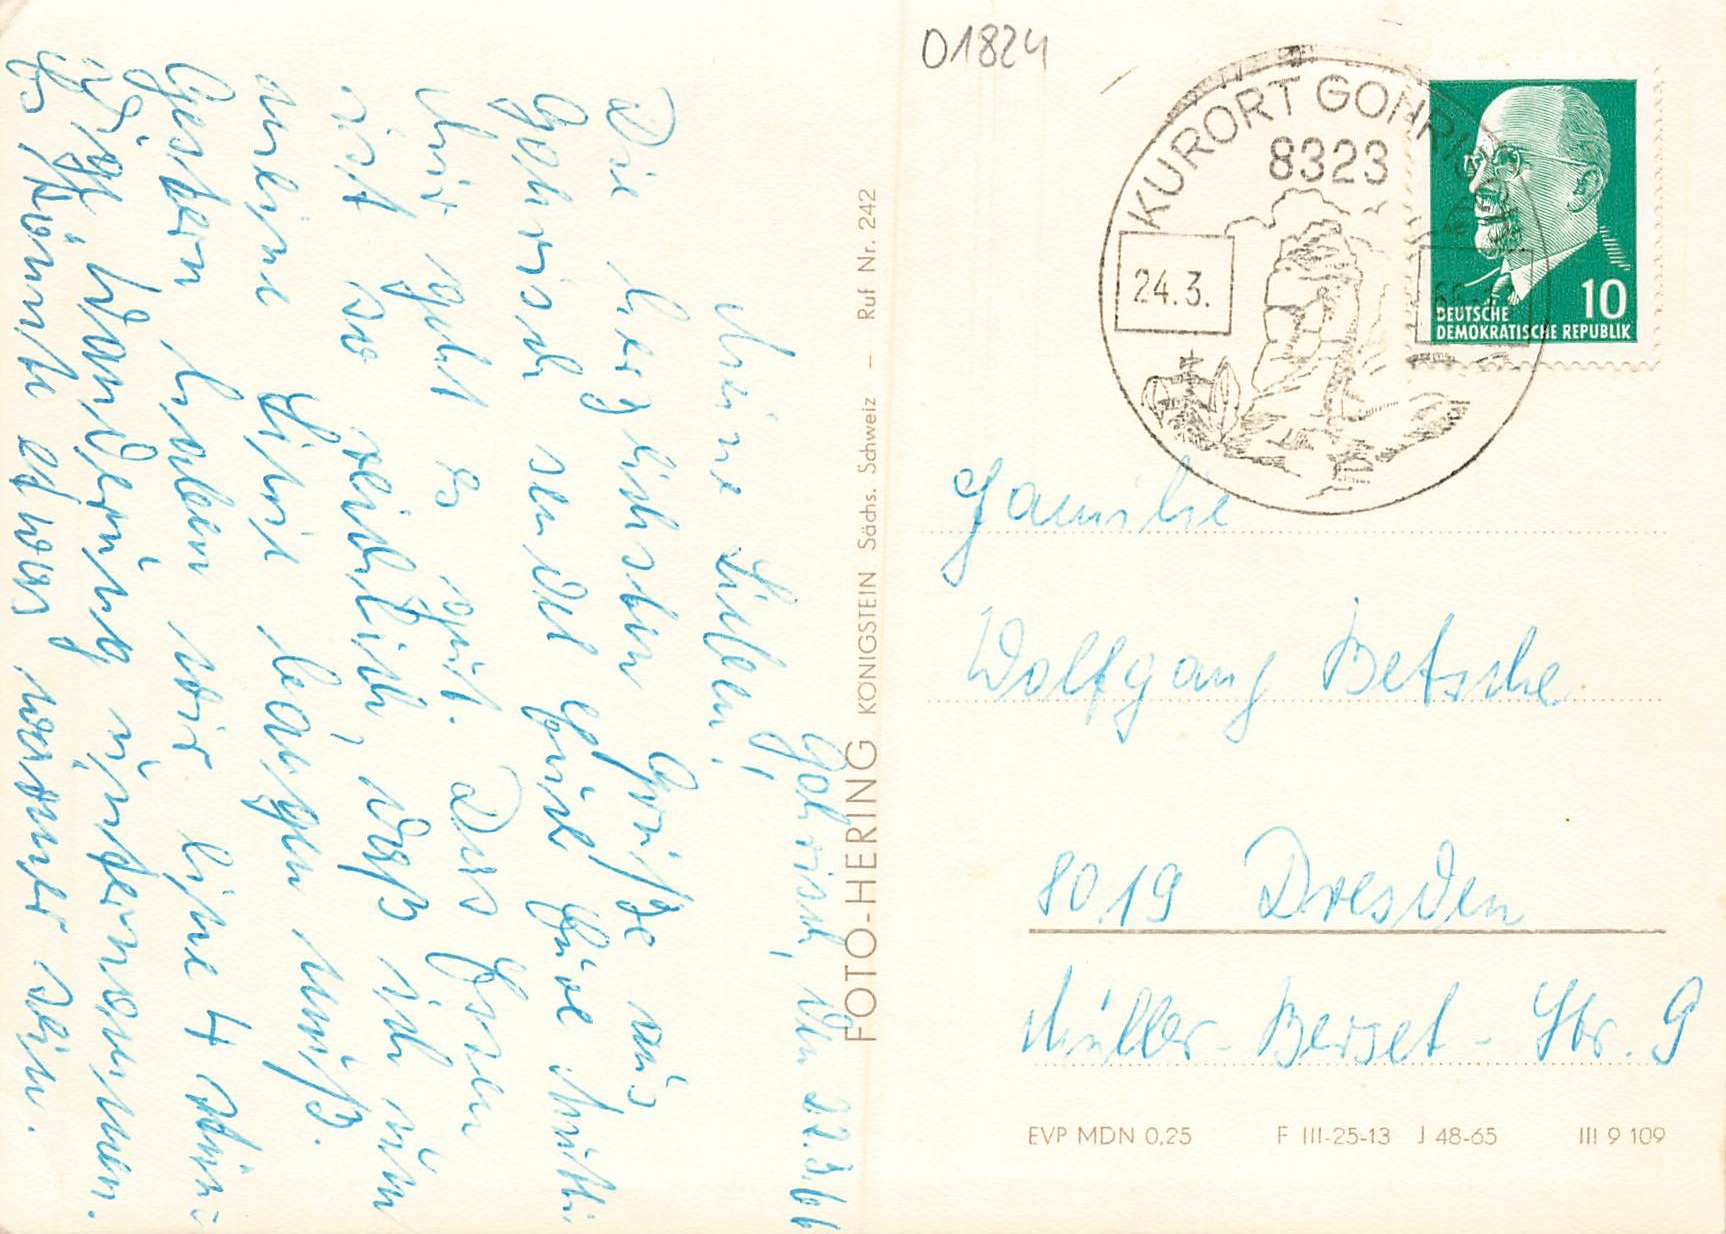 Gohrisch, den 22.3.66
Meine Lieben!
Die herzlichsten Grüße aus
Gohrisch sendet Euch Eure Mutti.
Mir geht es gut. Das Essen
ist so reichlich, daß ich um
meine Linie bangen muß.
Gestern haben wir eine 4 stün-
dige Wanderung unternommen.
Es könnte etwas wärmer sein.
FOTO-HERING KÖNIGSTEIN Sächs. Schweiz – Ruf Nr. 242
01824
KURORT GOHRISCH
8323
24.3.
66
10
DEUTSCHE
DEMOKRATISCHE REPUBLIK
Familie
Wolfgang Betsche
8019 Dresden
Müller-Berset-Str. 9
EVP MDN 0,25 F III-25-13 J 48-65 III 9 109